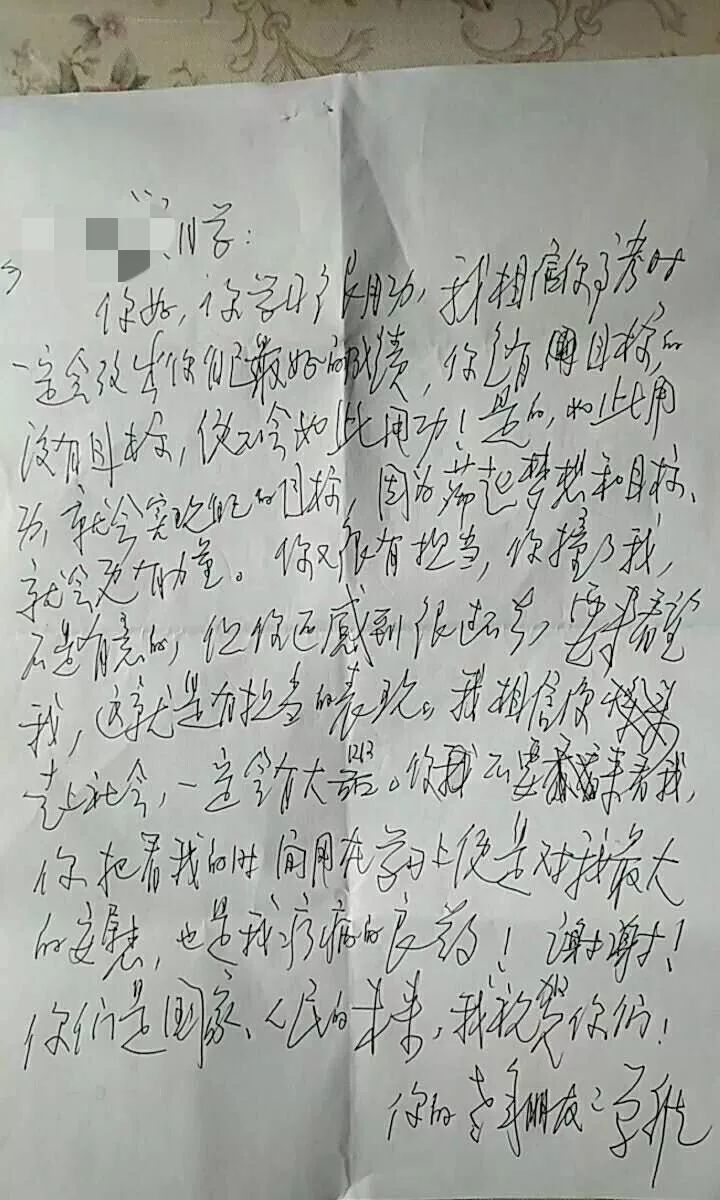 同学:
你好,你学习很用功,我相信你高考时
一定会考出你自己最好的成绩,你是有目标的,
没有目标,便不会如此用功!是的,如此用
功,就会实现自己的目标,因为有梦想和目标、
就会更有力量。你又很有担当,你撞了我,
不是有意的,但你还感到很过意,要来看望
我,这就是有担当的表现。我相信你
走上社会,一定会有大器。你不要来看我,
你把看我的时间用在学习上便是对我最大
的安慰,也是我疗病的良药!谢谢!
你们是国家、人民的未来,我祝贺你们!
你的老年朋友: